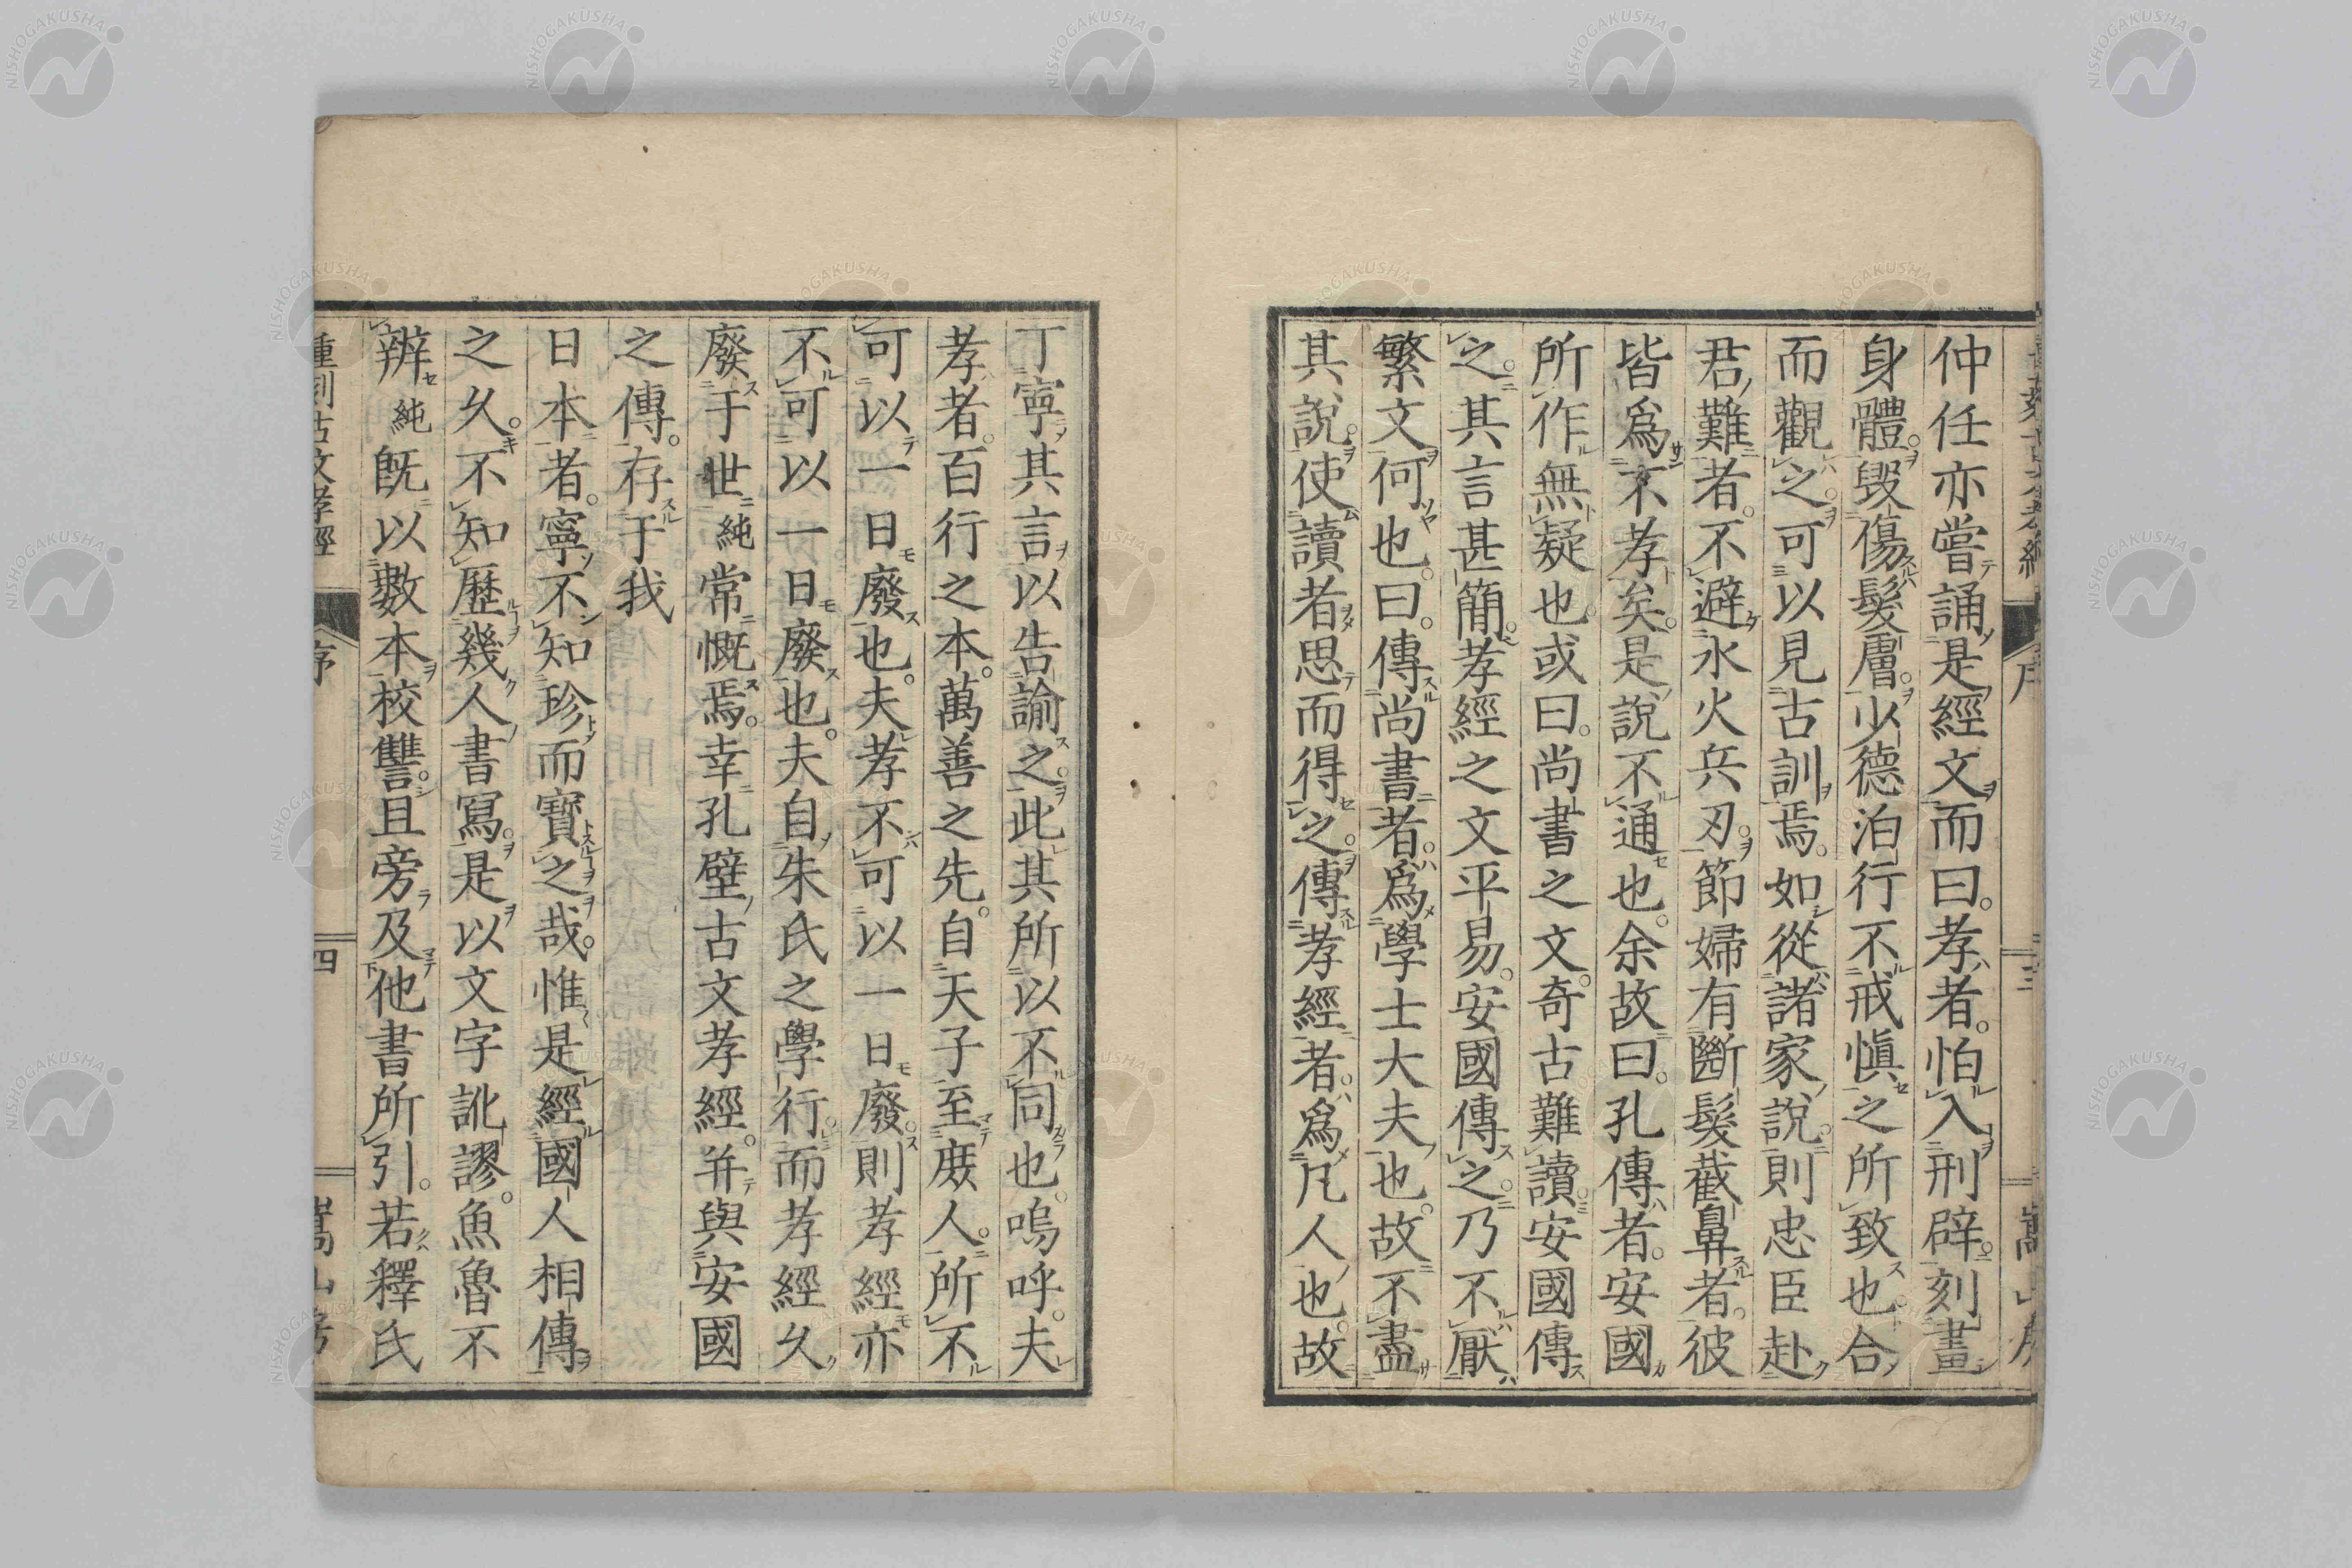 仲任亦嘗誦是經文而曰孝者怕入刑辟刻畫
身體毀傷髮膚少德泊行不戒愼之所致也合
而觀之可以見古訓焉如從諸家說則忠臣赴
君難者不避水火兵刃節婦有斷髮截鼻者彼
皆爲不孝矣是說不通也余故曰孔傳者安國
所作無疑也或曰尚書之文奇古難讀安國傳
之其言甚簡孝經之文平易安國傳之乃不厭
繁文何也曰傳尚書者爲學士大夫也故不盡
其說使讀者思而得之傳孝經者爲凡人也故
丁寧其言以告諭之此其所以不同也嗚呼夫
孝者百行之本萬善之先自天子至庶人所不
可以一日廢也夫孝不可以一日廢則孝經亦
不可以一日廢也夫自朱氏之學行而孝經久
廢于世純常慨焉幸孔壁古文孝經并與安國
之傳存于我
日本者寧不知珍而寶之哉惟是經國人相傳
之久不知歷幾人書寫是以文字訛謬魚魯不
辨純既以數本校讐且旁及他書所引若釋氏
重刻古文孝經 序 四